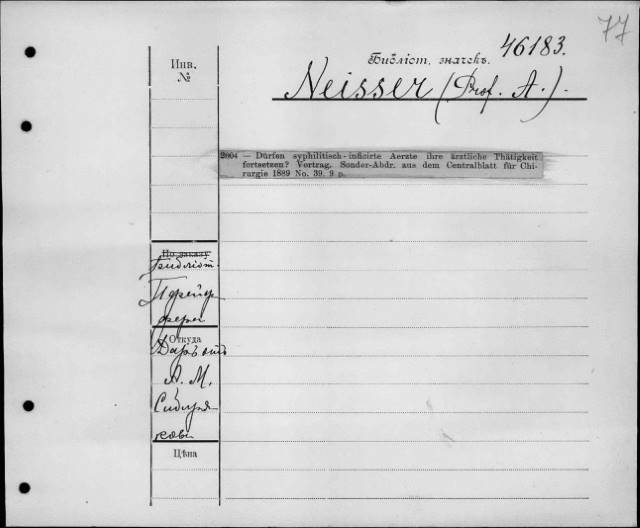 77
46183.
Библіот. значекъ.
Инв.
№
Neisser (Prof. A.).
2804 — Dürfen syphilitisch-inficirte Aerzte ihre ärztliche Thätigkeit
fortsetzen? Vortrag. Sonder-Abdr. aus dem Centralblatt für Chi-
rurgie 1889 No. 39. 9 p.
По заказу
Библіот.
Пфейф
фера
Откуда
Даръ отъ
А. М.
Сибиря
кова
Цѣна